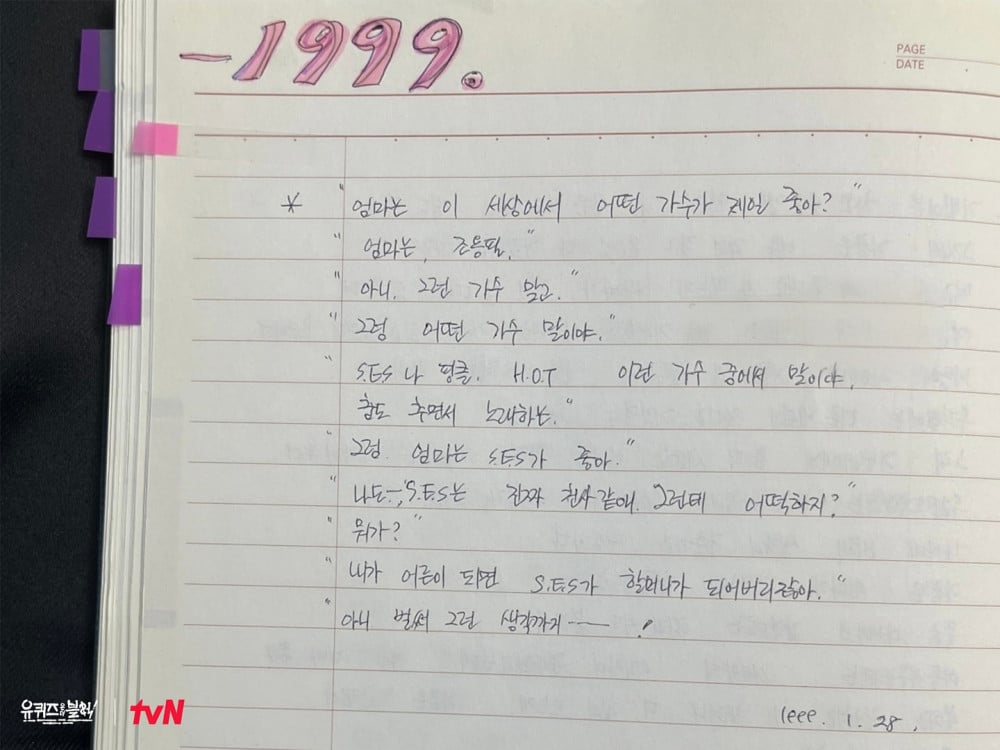 -1999.
PAGE
DATE
* "엄마는 이 세상에서 어떤 가수가 제일 좋아?"
"엄마는, 조용필."
"아니. 그런 가수 말고."
"그럼 어떤 가수 말이야."
"S.E.S 나 핑클. H.O.T 이런 가수 중에서 말이야.
춤도 추면서 노래하는."
"그럼. 엄마는 S.E.S가 좋아."
"나도-, S.E.S는 진짜 천사같애. 그런데 어떡하지?"
"뭐가?"
"내가 어른이 되면 S.E.S가 할머니가 되어버리잖아."
"아니 벌써 그런 생각까지—— !
1999. 1. 28.
유퀴즈 온 더 블럭
tvN